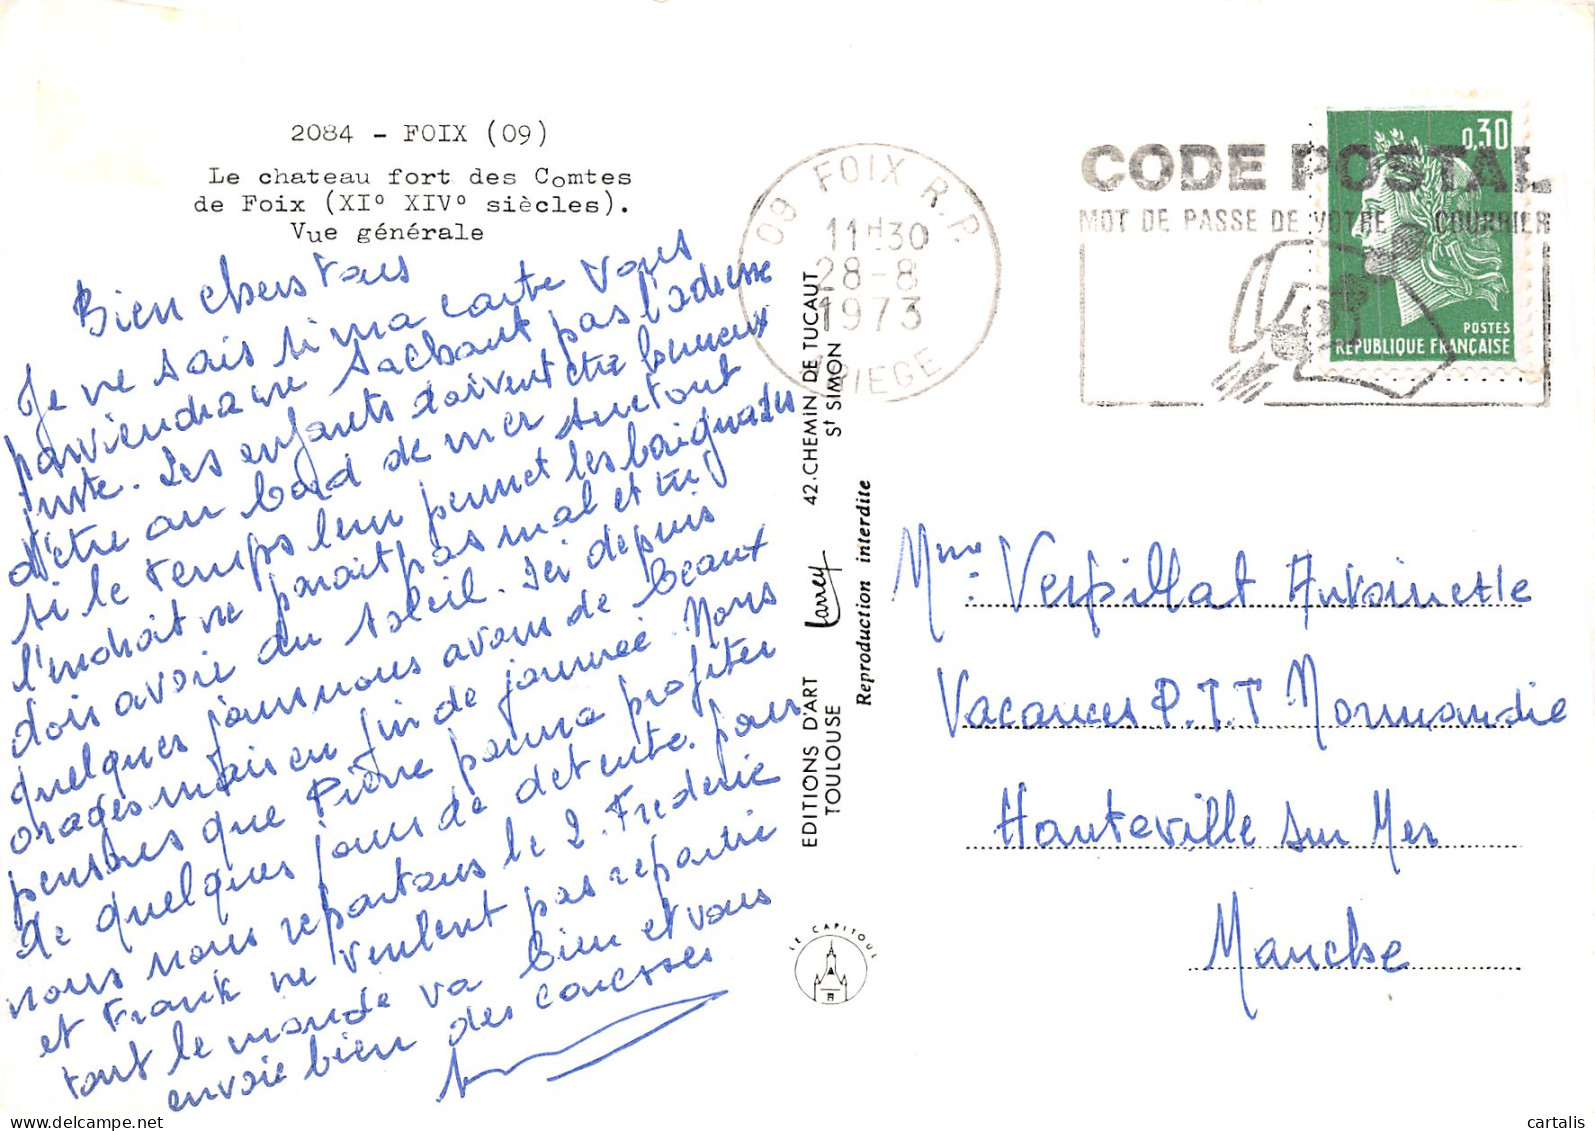 2084 - FOIX (09)
Le chateau fort des Comtes
de Foix (XI° XIV° siècles).
Vue générale
Bien chers tous
Je ne sais si ma carte vous
parviendra ne sachant pas l'adresse
juste. Les enfants doivent être heureux
d'être au bord de mer surtout
si le temps leur permet les baignades
l'endroit ne parait pas mal et tu
dois avoir du soleil. Ici depuis
quelques jours nous avons de beaux
orages mais en fin de journée. Nous
pensons que Pierre pourra profiter
de quelques jours de détente. pour
nous nous repartons le 2. Frédéric
et Franck ne veulent pas repartir
tout le monde va bien et vous
envoie bien des caresses
09 FOIX R.P.
11H30
28-8
1973
ARIEGE
CODE POSTAL
MOT DE PASSE DE VOTRE COURRIER
0,30
POSTES
REPUBLIQUE FRANÇAISE
EDITIONS D'ART Larrey 42.CHEMIN DE TUCAUT
TOULOUSE St SIMON
Reproduction interdite
LE CAPITOUL
Mme: Verpillat Antoinette
Vacances P.T.T Normandie
Hauteville sur Mer
Manche
delcampe.net
cartalis